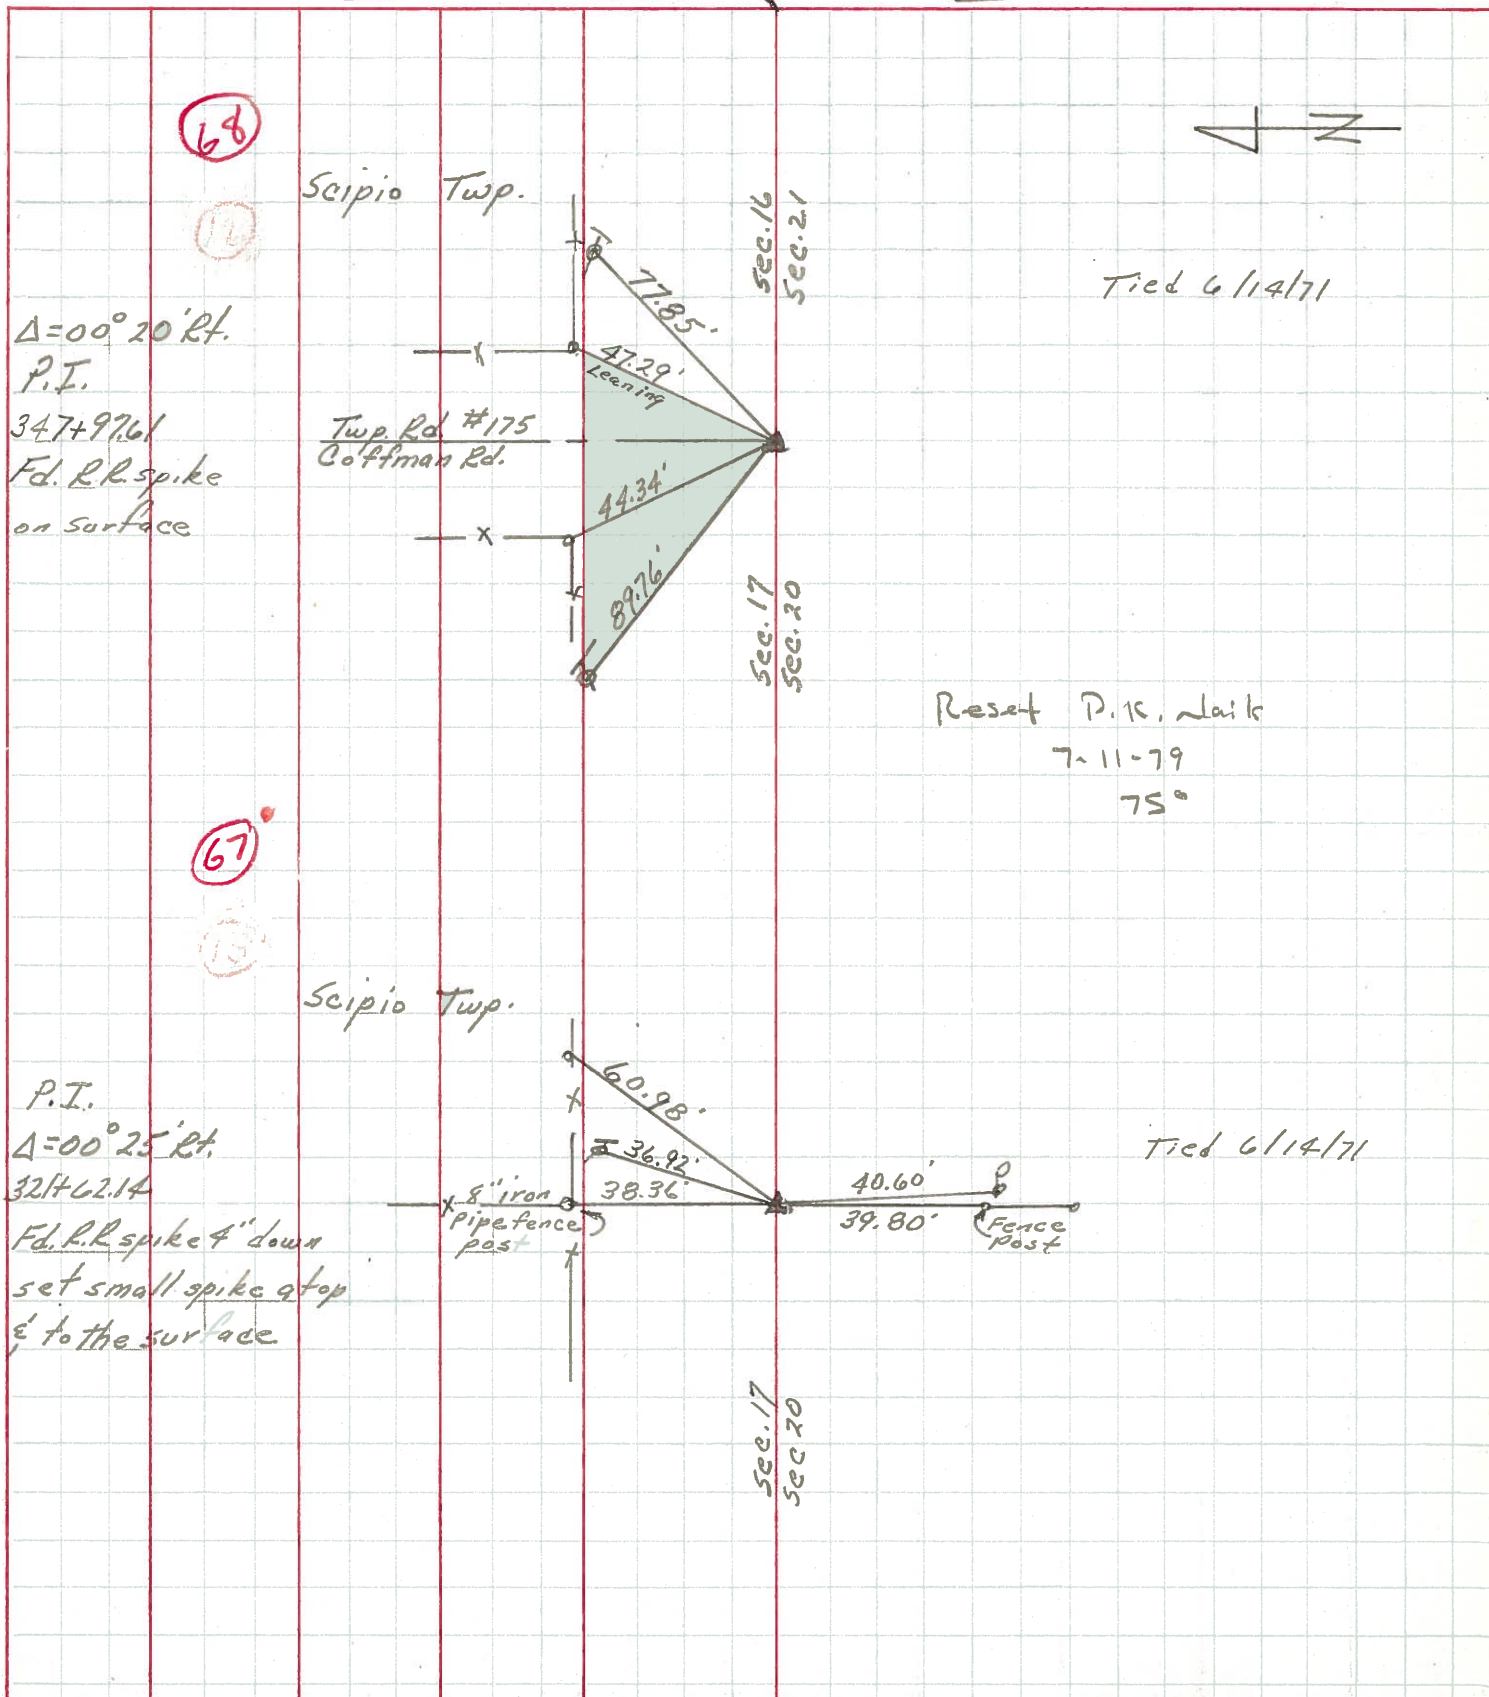 68
12
N
Scipio Twp.
Sec. 16
Sec. 21
Tied 6/14/71
Δ=00°20' Rt.
P.I.
347+97.61
Fd. R.R. spike
on surface
77.85'
47.29'
Leaning
Twp. Rd. #175
Coffman Rd.
44.34'
89.76'
Sec. 17
Sec. 20
Reset P.K. Nail
7-11-79
75°
67
Scipio Twp.
P.I.
Δ=00°25' Rt.
321+62.14
Fd. R.R spike 4" down
set small spike atop
& to the surface
60.98'
36.92'
38.36'
8" iron
pipe fence
post
40.60'
39.80'
Fence
post
Tied 6/14/71
Sec. 17
Sec 20